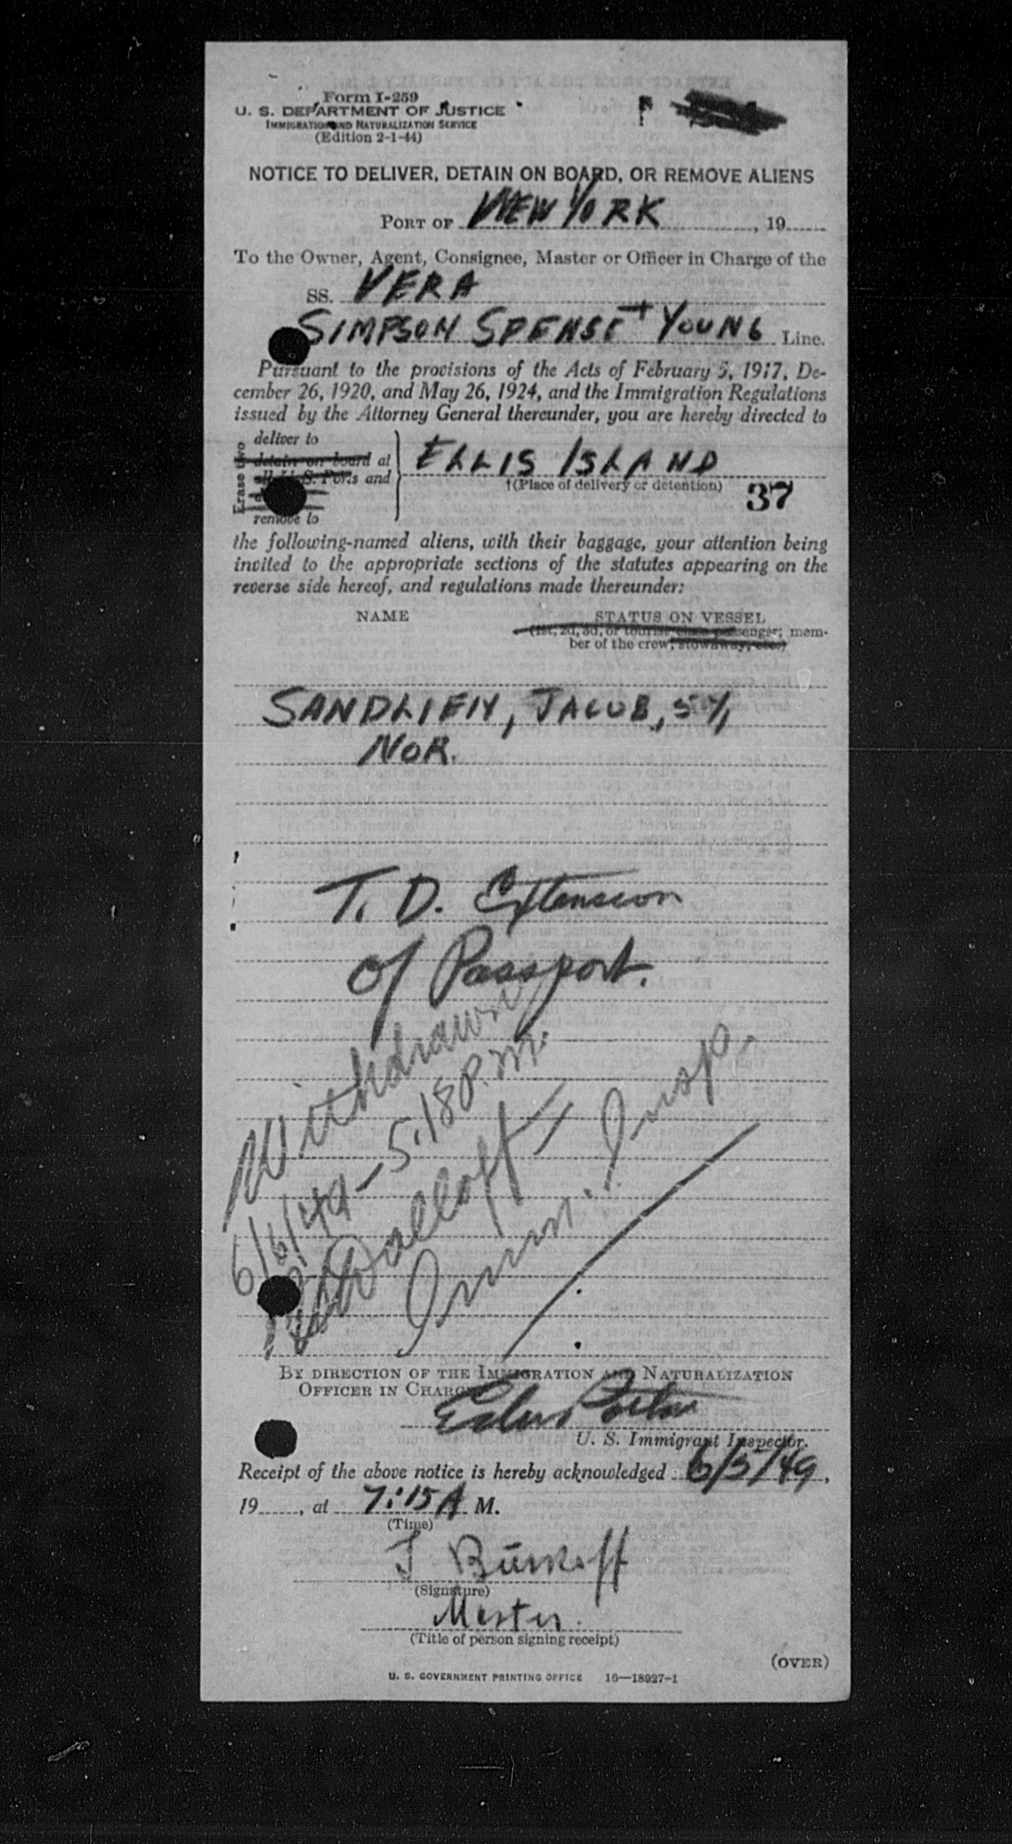 Form I-259
U. S. DEPARTMENT OF JUSTICE
IMMIGRATION AND NATURALIZATION SERVICE
(Edition 2-1-44)
NOTICE TO DELIVER, DETAIN ON BOARD, OR REMOVE ALIENS
PORT OF NEW YORK, 19
To the Owner, Agent, Consignee, Master or Officer in Charge of the
SS. VERA
SIMPSON SPENSE + YOUNG Line.
Pursuant to the provisions of the Acts of February 5, 1917, De-
cember 26, 1920, and May 26, 1924, and the Immigration Regulations
issued by the Attorney General thereunder, you are hereby directed to
Erase two
deliver to
detain on board at
all U. S. Ports and
remove to
ELLIS ISLAND
†(Place of delivery or detention)
37
the following-named aliens, with their baggage, your attention being
invited to the appropriate sections of the statutes appearing on the
reverse side hereof, and regulations made thereunder:
NAME STATUS ON VESSEL
(1st, 2d, 3d, or tourist class passenger; mem-
ber of the crew; stowaway, etc.)
SANDLIEN, JACOB,
NOR.
T. D. Extension
of Passport.
Withdrawn
6/6/49 - 5:18 P.M.
Imm. Insp.
BY DIRECTION OF THE IMMIGRATION AND NATURALIZATION
OFFICER IN CHARGE
U. S. Immigrant Inspector.
Receipt of the above notice is hereby acknowledged 6/5/49,
19, at 7:15 A M.
(Time)
(Signature)
Master.
(Title of person signing receipt)
(OVER)
U. S. GOVERNMENT PRINTING OFFICE 16—18927-1